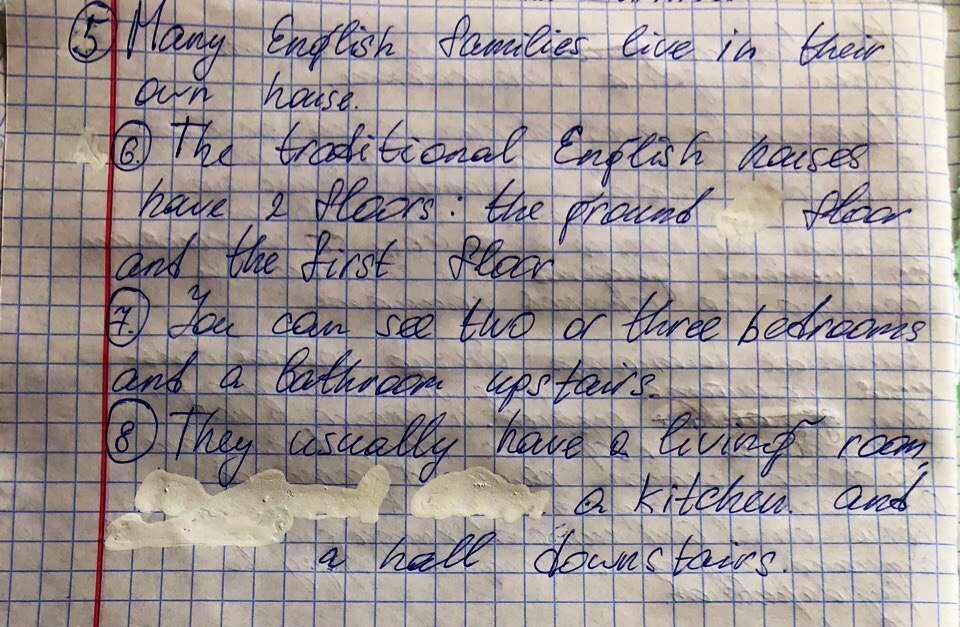 5 Many English families live in their
own house.
6. The traditional English houses
have 2 floors: the ground floor
and the first floor
7. You can see two or three bedrooms
and a bathroom upstairs.
8 They usually have a living room,
a kitchen and
a hall downstairs.